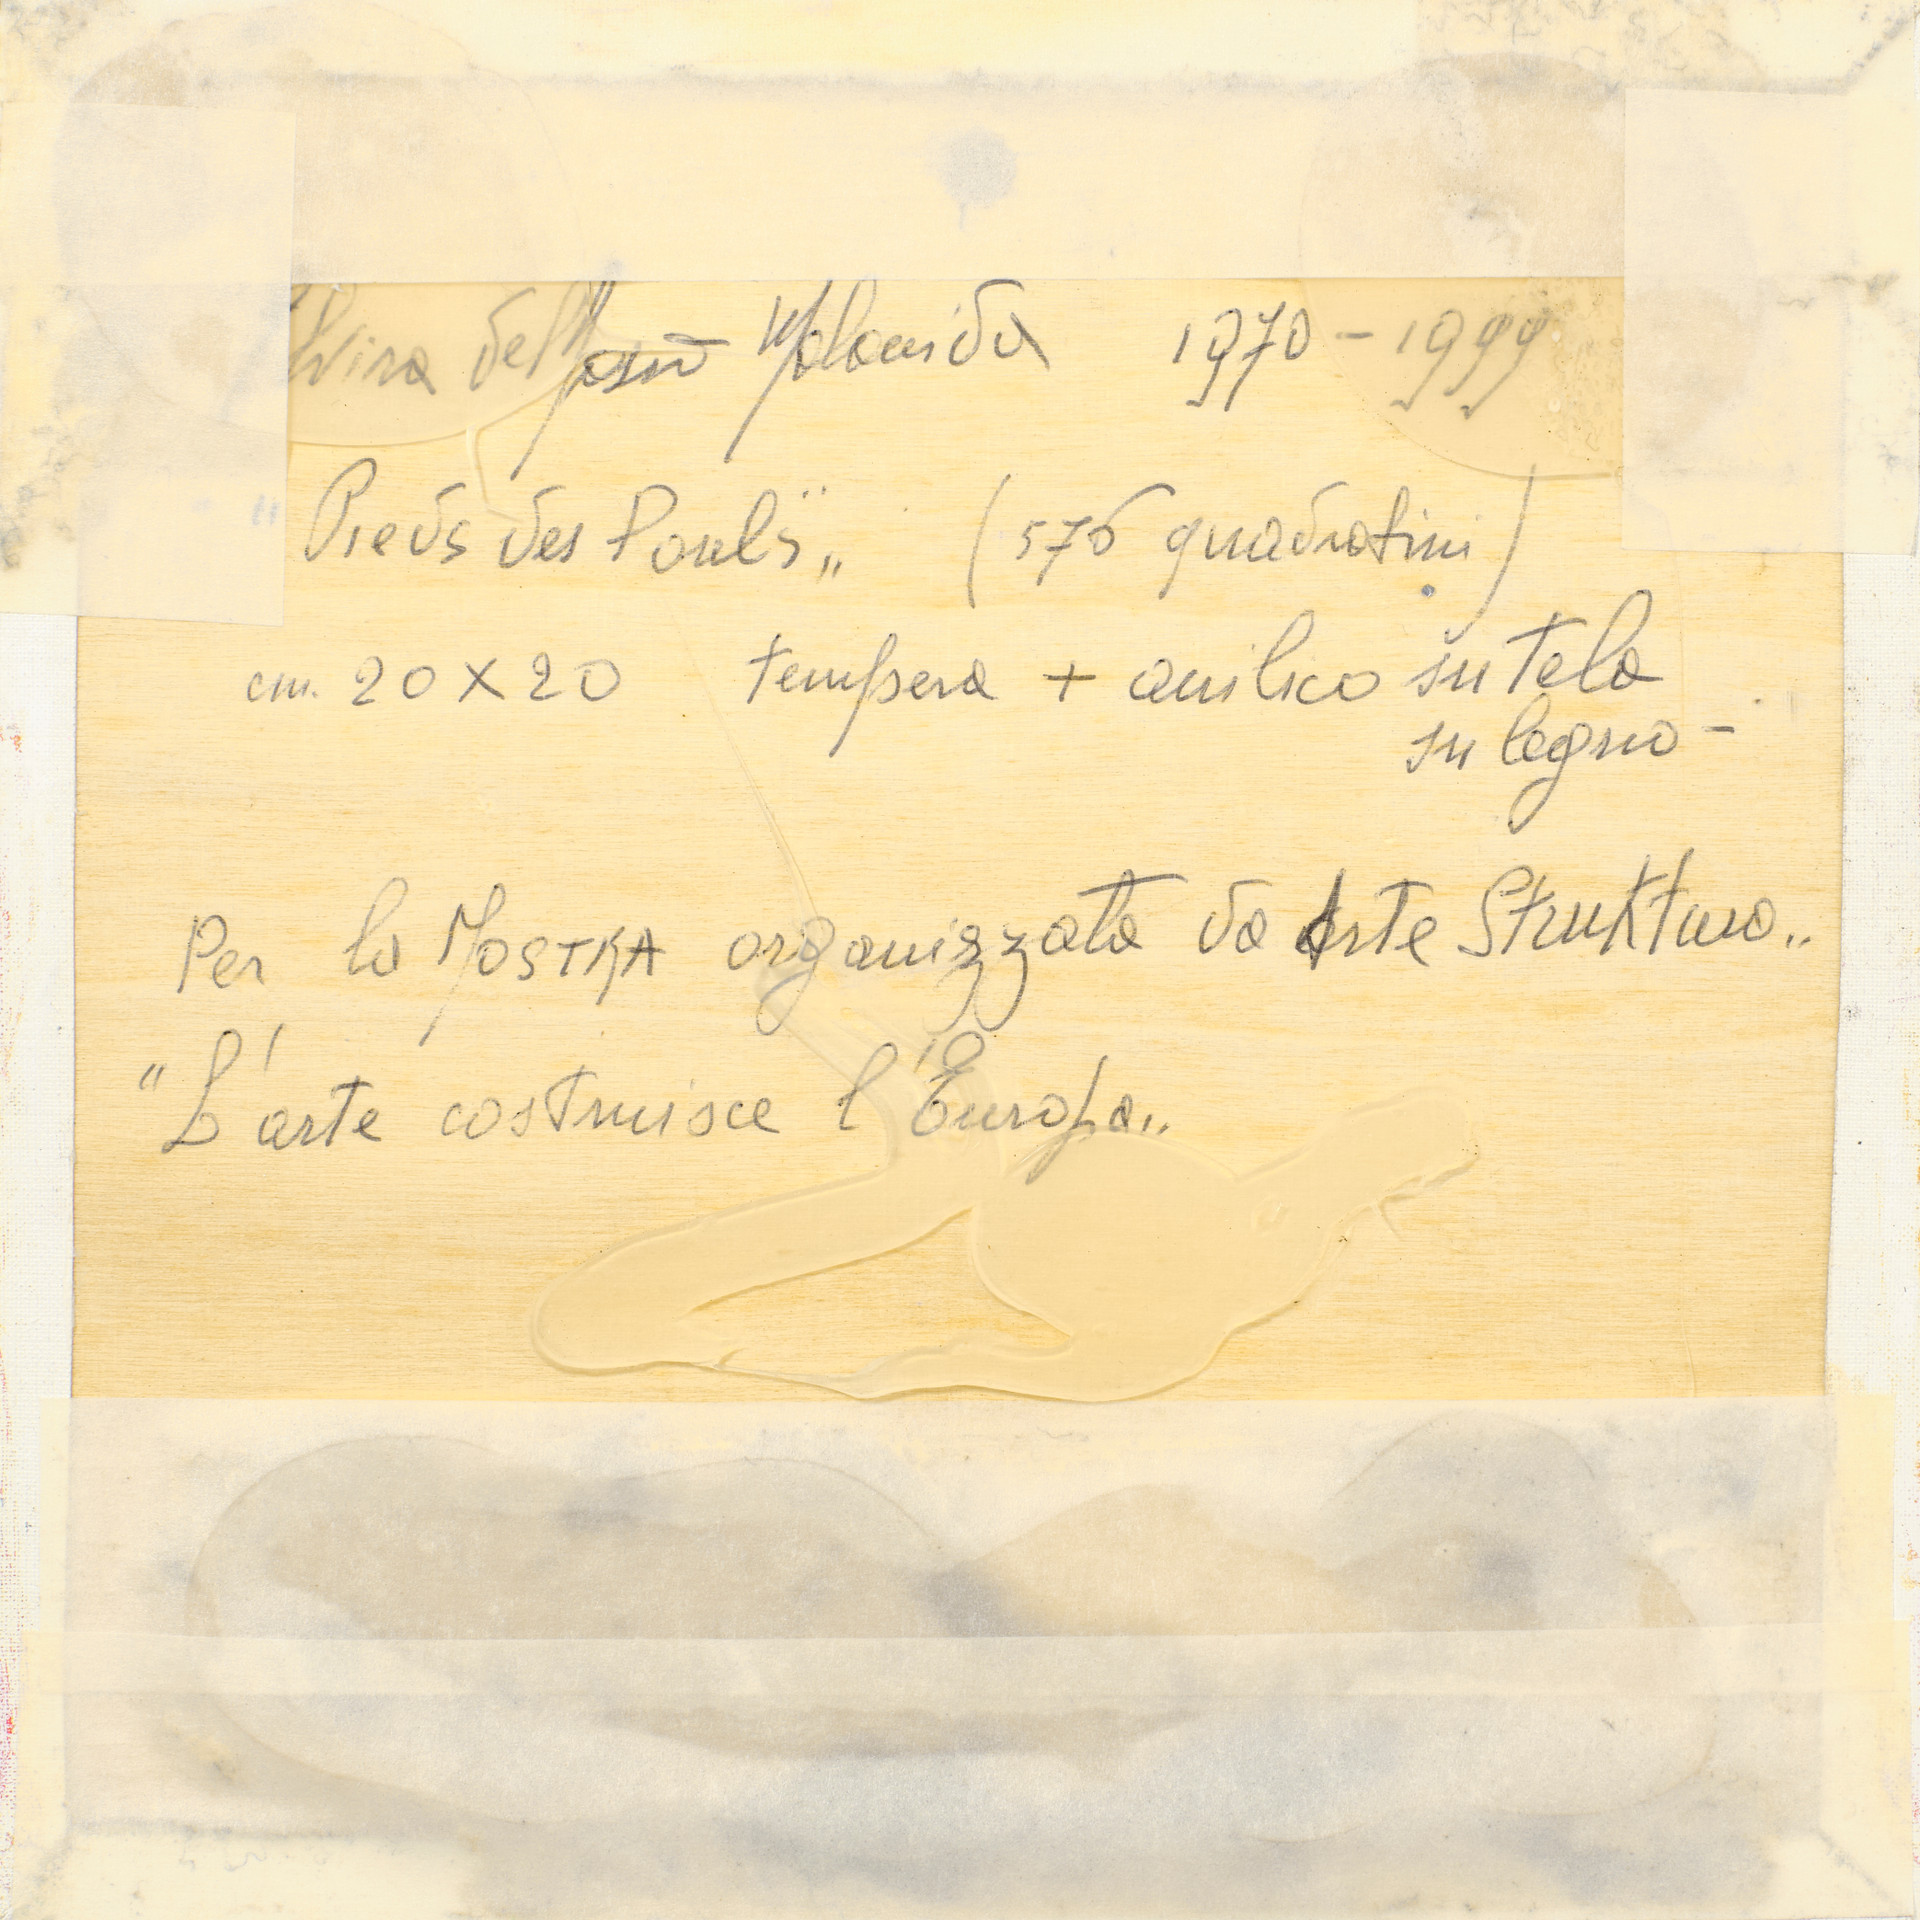 1970 - 1999
Pieds des (576 quadratini)
cm. 20 X 20 tempera + acrilico su tela
su legno -
Per la MOSTRA organizzata da Arte Struktura „
" L'arte costruisce l'Europa „